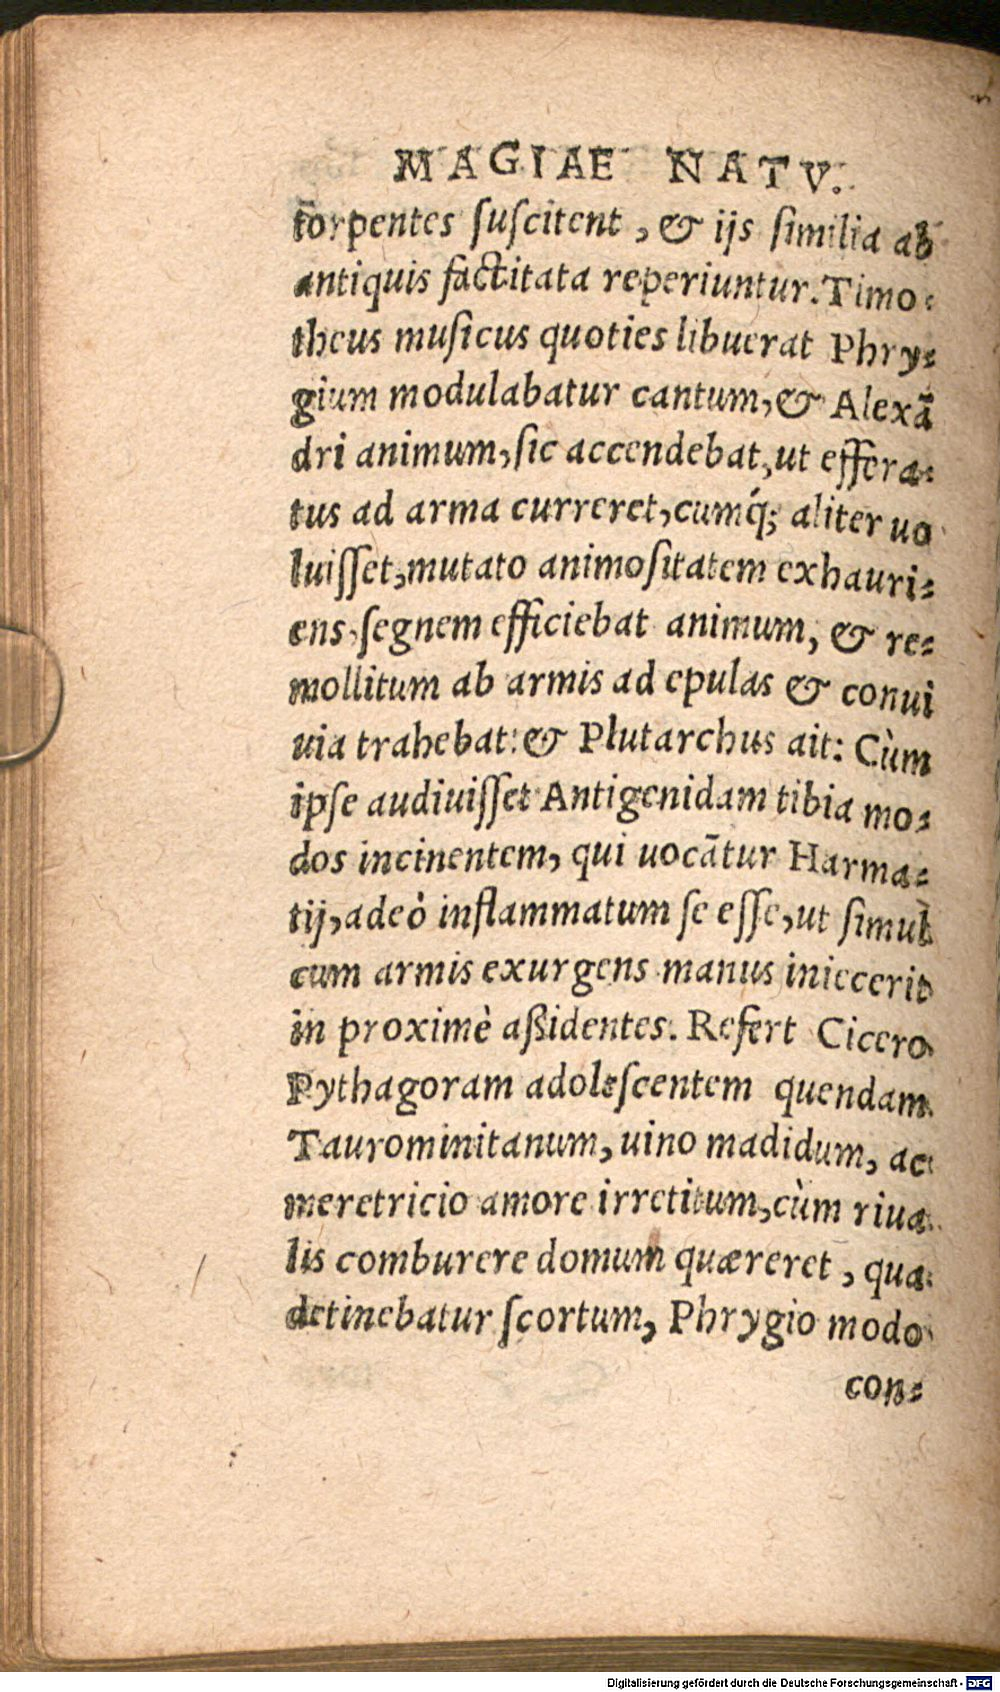 MAGIAE NATV.
torpentes ſuſcitent, & ijs ſimilia ab
antiquis factitata reperiuntur. Timo-
theus muſicus quoties libuerat Phry-
gium modulabatur cantum, & Alexã
dri animum, ſic accendebat, ut effera-
tus ad arma curreret, cumq́; aliter uo
luiſſet, mutato animoſitatem exhauri-
ens, ſegnem efficiebat animum, & re-
mollitum ab armis ad epulas & conui
uia trahebat: & Plutarchus ait: Cùm
ipſe audiuiſſet Antigenidam tibia mo-
dos incinentem, qui uocãtur Harma-
tij, adeò inflammatum ſe eſſe, ut ſimul
cum armis exurgens manus iniecerit
in proximè aßidentes. Refert Cicero
Pythagoram adoleſcentem quendam
Taurominitanum, uino madidum, ac
meretricio amore irretitum, cùm riua-
lis comburere domum quæreret, qua
detinebatur ſcortum, Phrygio modo
con-
Digitalisierung gefördert durch die Deutsche Forschungsgemeinschaft - DFG